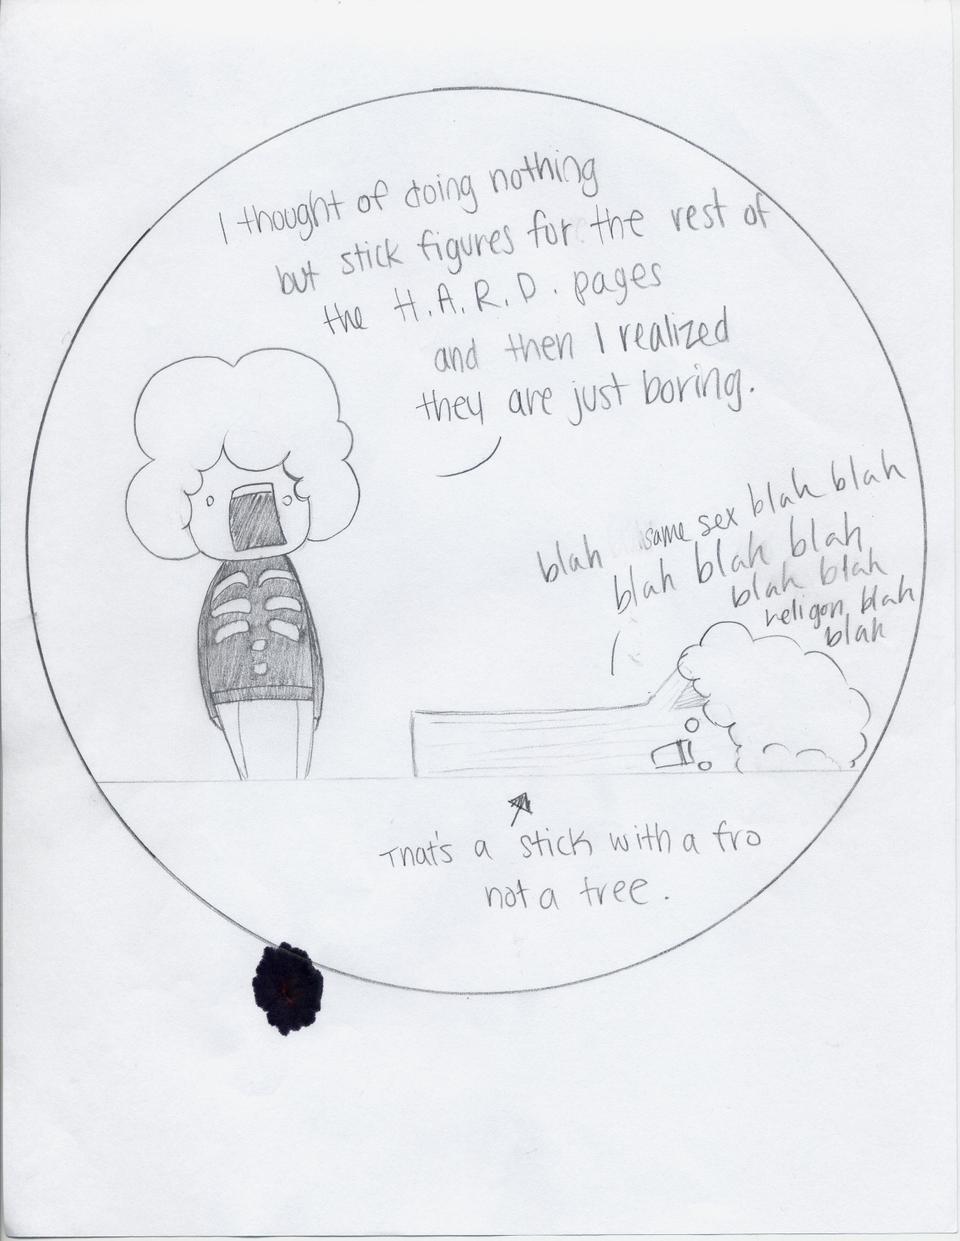 I thought of doing nothing
but stick figures for the rest of
the H.A.R.D. pages
and then I realized
they are just boring.
blah same sex blah blah
blah blah blah
blah blah
religon blah
blah
That's a stick with a fro
not a tree.